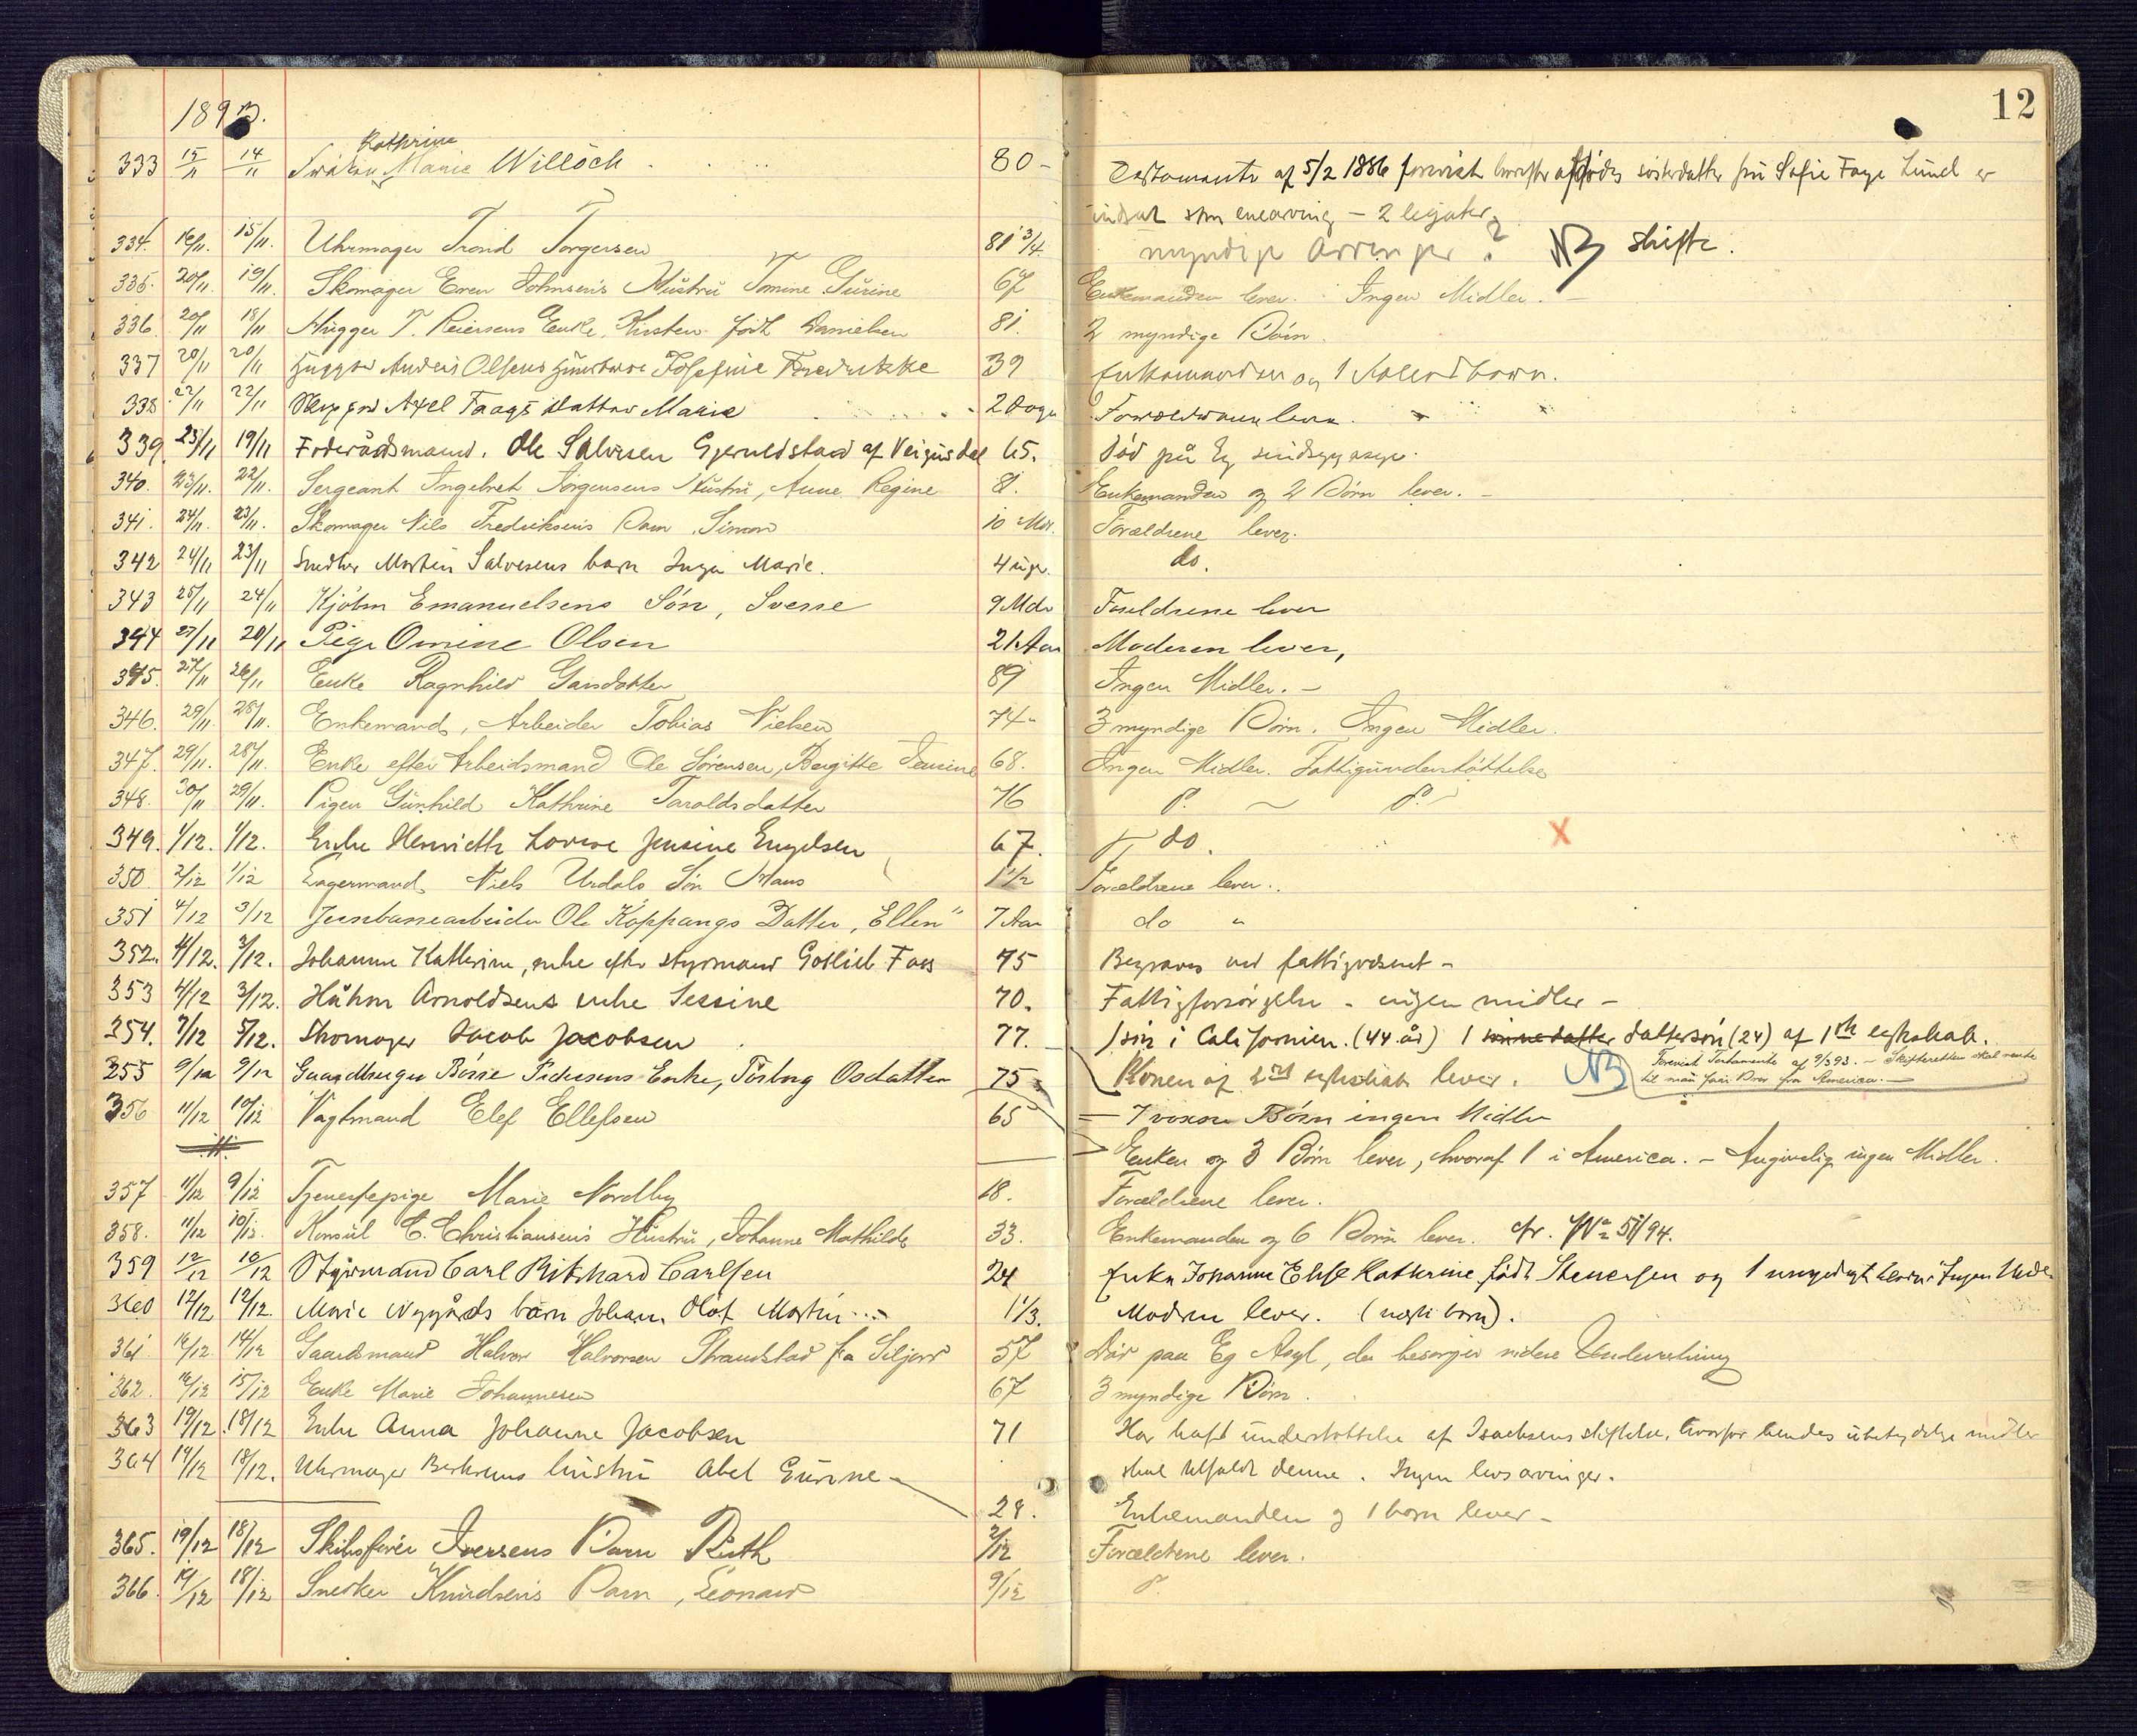 12
1893.
Kathrine
333 15/11 14/11 Frøken Marie Willoch 80 - Testamente af 5/2 1886 forevist hvorefter afdødes søsterdatter frü Sofie Faye Lund er
indsat som enearving - 2 legater.
334. 16/11. 15/11. Uhrmager Trond Torgersen 81 3/4 myndige arvinger? NB skifte.
335. 20/11. 19/11. Skomager Even Johnsens Hüstrü Tomine Gürine 67 Enkemanden lever. Ingen Midler. -
336. 20/11 18/11 Hugger T. Reiersens Enke, Kirsten født Danielsen 81. 2 myndige Børn.
337 20/11 20/11 Hugger Anders Olsens Hustru Josefine Fredrikke 39 Enkemanden og 1 barn.
338. 22/11 22/11 Axel Faags datter Marie 2 Dage Forældrene lever.
339. 23/11 19/11 Føderådsmand. Ole Salvesen Gjeruldstad af Veigusdal 65. Død på Eg sindsygeasyl.
340. 23/11. 22/11. Sergeant Ingebret Jørgensens Hustrü, Anne Regine 81. Enkemanden og 2 Børn lever. -
341. 24/11. 23/11. Skomager Nils Fredriksens Barn, Simon 10 Mdr. Forældrene lever.
342 24/11 23/11 Snedker Morten Salvesens barn Inga Marie. 4 uger. do.
343 25/11 24/11 Kjøbm Emanuelsens Søn, Sverre 9 Mdr Foreldrene lever
344 27/11 20/11 Pige Omine Olsen 21 Aar Moderen lever,
345. 27/11 26/11 Enke Ragnhild 89 Ingen Midler. -
346. 29/11. 28/11. Enkemand, Arbeider Tobias Nielsen 74 - 3 myndige Børn. Ingen Midler.
347. 29/11. 28/11. Enke efter Arbeidsmand Ole Sørensen, Bergitte Tensine 68. Ingen Midler. Fattigunderstøttelse
348. 30/11 29/11. Pigen Günhild Kathrine Taraldsdatter 76
349. 1/12. 1/12. Enke Henriette Lovise Jensine Engelsen 67. do. X
350 2/12 1/12 Lagermand Niels Urdals Søn Hans 1 1/2 Forældrene lever.
351 4/12 3/12 Jernbanearbeider Ole Koppangs Datter, "Ellen" 7 Aar do "
352. 4/12. 3/12. Johanne Kathrine, enke efter styrmand Gotlieb Foss 75 Begraves ved fattigvæsenet -
353 4/12 3/12. Håkon Arnoldsens enke Sessine 70. Fattigforsørgelse - ingen midler -
354. 7/12 5/12. Skomager Jacob Jacobsen 77. 1 søn i Californien. (44 år) 1 sønnedatter dattersøn (24) af 1ste egteskab.
Konen af 2det egteskab lever. NB Forevist Testamente af 9/3 93. - Skifteretten skal vente
til man faar Brev fra America. -
355 9/12 9/12 Gaardbruger Børre Pedersens Enke, Torborg Osdatter 75 = 7 voxne Børn ingen Midler
356 11/12 10/12 Vagtmand Elef Ellefsen 65 Enken og 3 Børn lever, hvoraf 1 i America. - Angivelig ingen Midler.
357 11/12 9/12 Tjenestepige Marie Nordby 18. Forældrene lever.
358. 11/12 10/12. Konsül C. Christiansens Hüstrü, Johanne Mathilde 33. Enkemanden og 6 Børn lever. cfr. No 51/94.
359 12/12 10/12 Styrmand Carl Rikhard Carlsen 24 Enke Johanne Elise Kathrine født Stenersen og 1 umyndigt barn. Ingen Midler
360 12/12 12/12. Marie Nygårds barn Johan Olaf Martin - 1 1/3. Modren lever. (uægte barn).
361 16/12. 14/12 Gaardmand Halvor Halvorsen Strandstad fra Siljord 57 Død paa Eg Asyl, der besørger videre Underretning
362. 16/12 15/12 Enke Marie Johannesen 67 3 myndige Børn.
363 19/12. 18/12 Enke Anna Johanne Jacobsen 71 Har haft understøttelse af Isachsens stiftelse, hvorfor hendes ubetydelige midler
skal tilfalde denne. Ingen livsarvinger.
364 19/12 18/12. Uhrmager Bertrums hüstrü Abel Gurine - 28. Enkemanden og 1 barn lever -
365. 19/12 18/12 Skibsfører Iversens Barn Rüth 2/12 Forældrene lever.
366. 19/12 18/12 Snedker Knüdsens Barn, Leonard 9/12